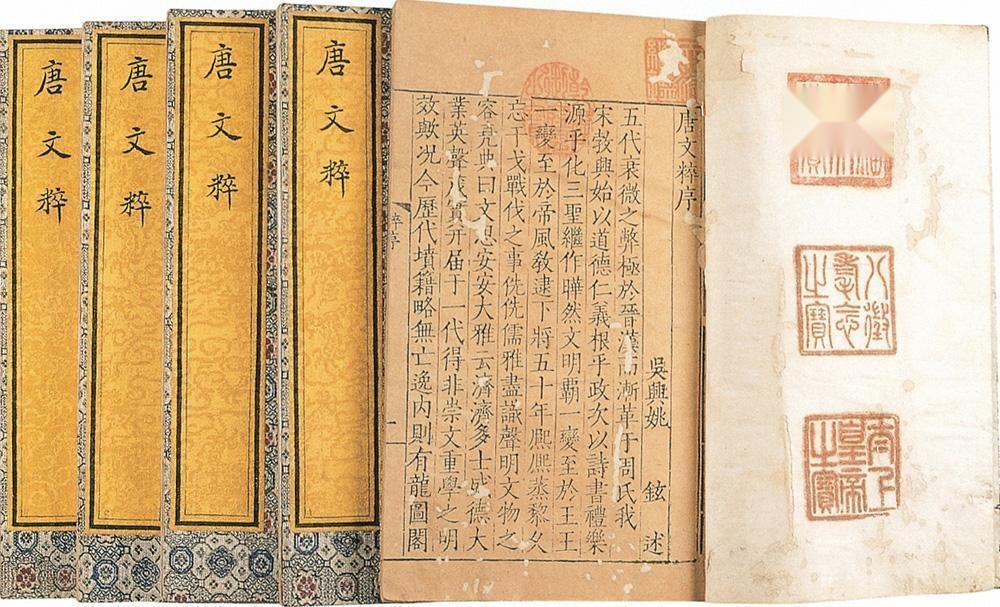 八徵耄念之寶
太上皇帝之寶
唐文粹序
吳興姚 鉉 述
五代衰微之弊極於晉漢而漸革于周氏我
宋㪍興始以道德仁義根乎政次以詩書禮樂
源乎化三聖繼作曄然文明霸一變至於王王
一變至於帝風敎逮下將五十年熈熈蒸黎久
忘干戈戰伐之事侁侁儒雅盡識聲明文物之
容堯典曰文思安安大雅云濟濟多士盛德大
業英聲茂實并届于一代得非崇文重學之明
效歟况今歷代墳籍略無亡逸內則有龍圖閣
粹序
一
唐文粹
唐文粹
唐文粹
唐文粹